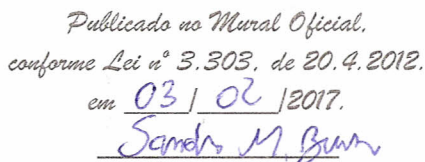 Publicado no Mural Oficial,
conforme Lei nº 3.303, de 20.4.2012.
em 03 / 02 /2017.
Sandro M.